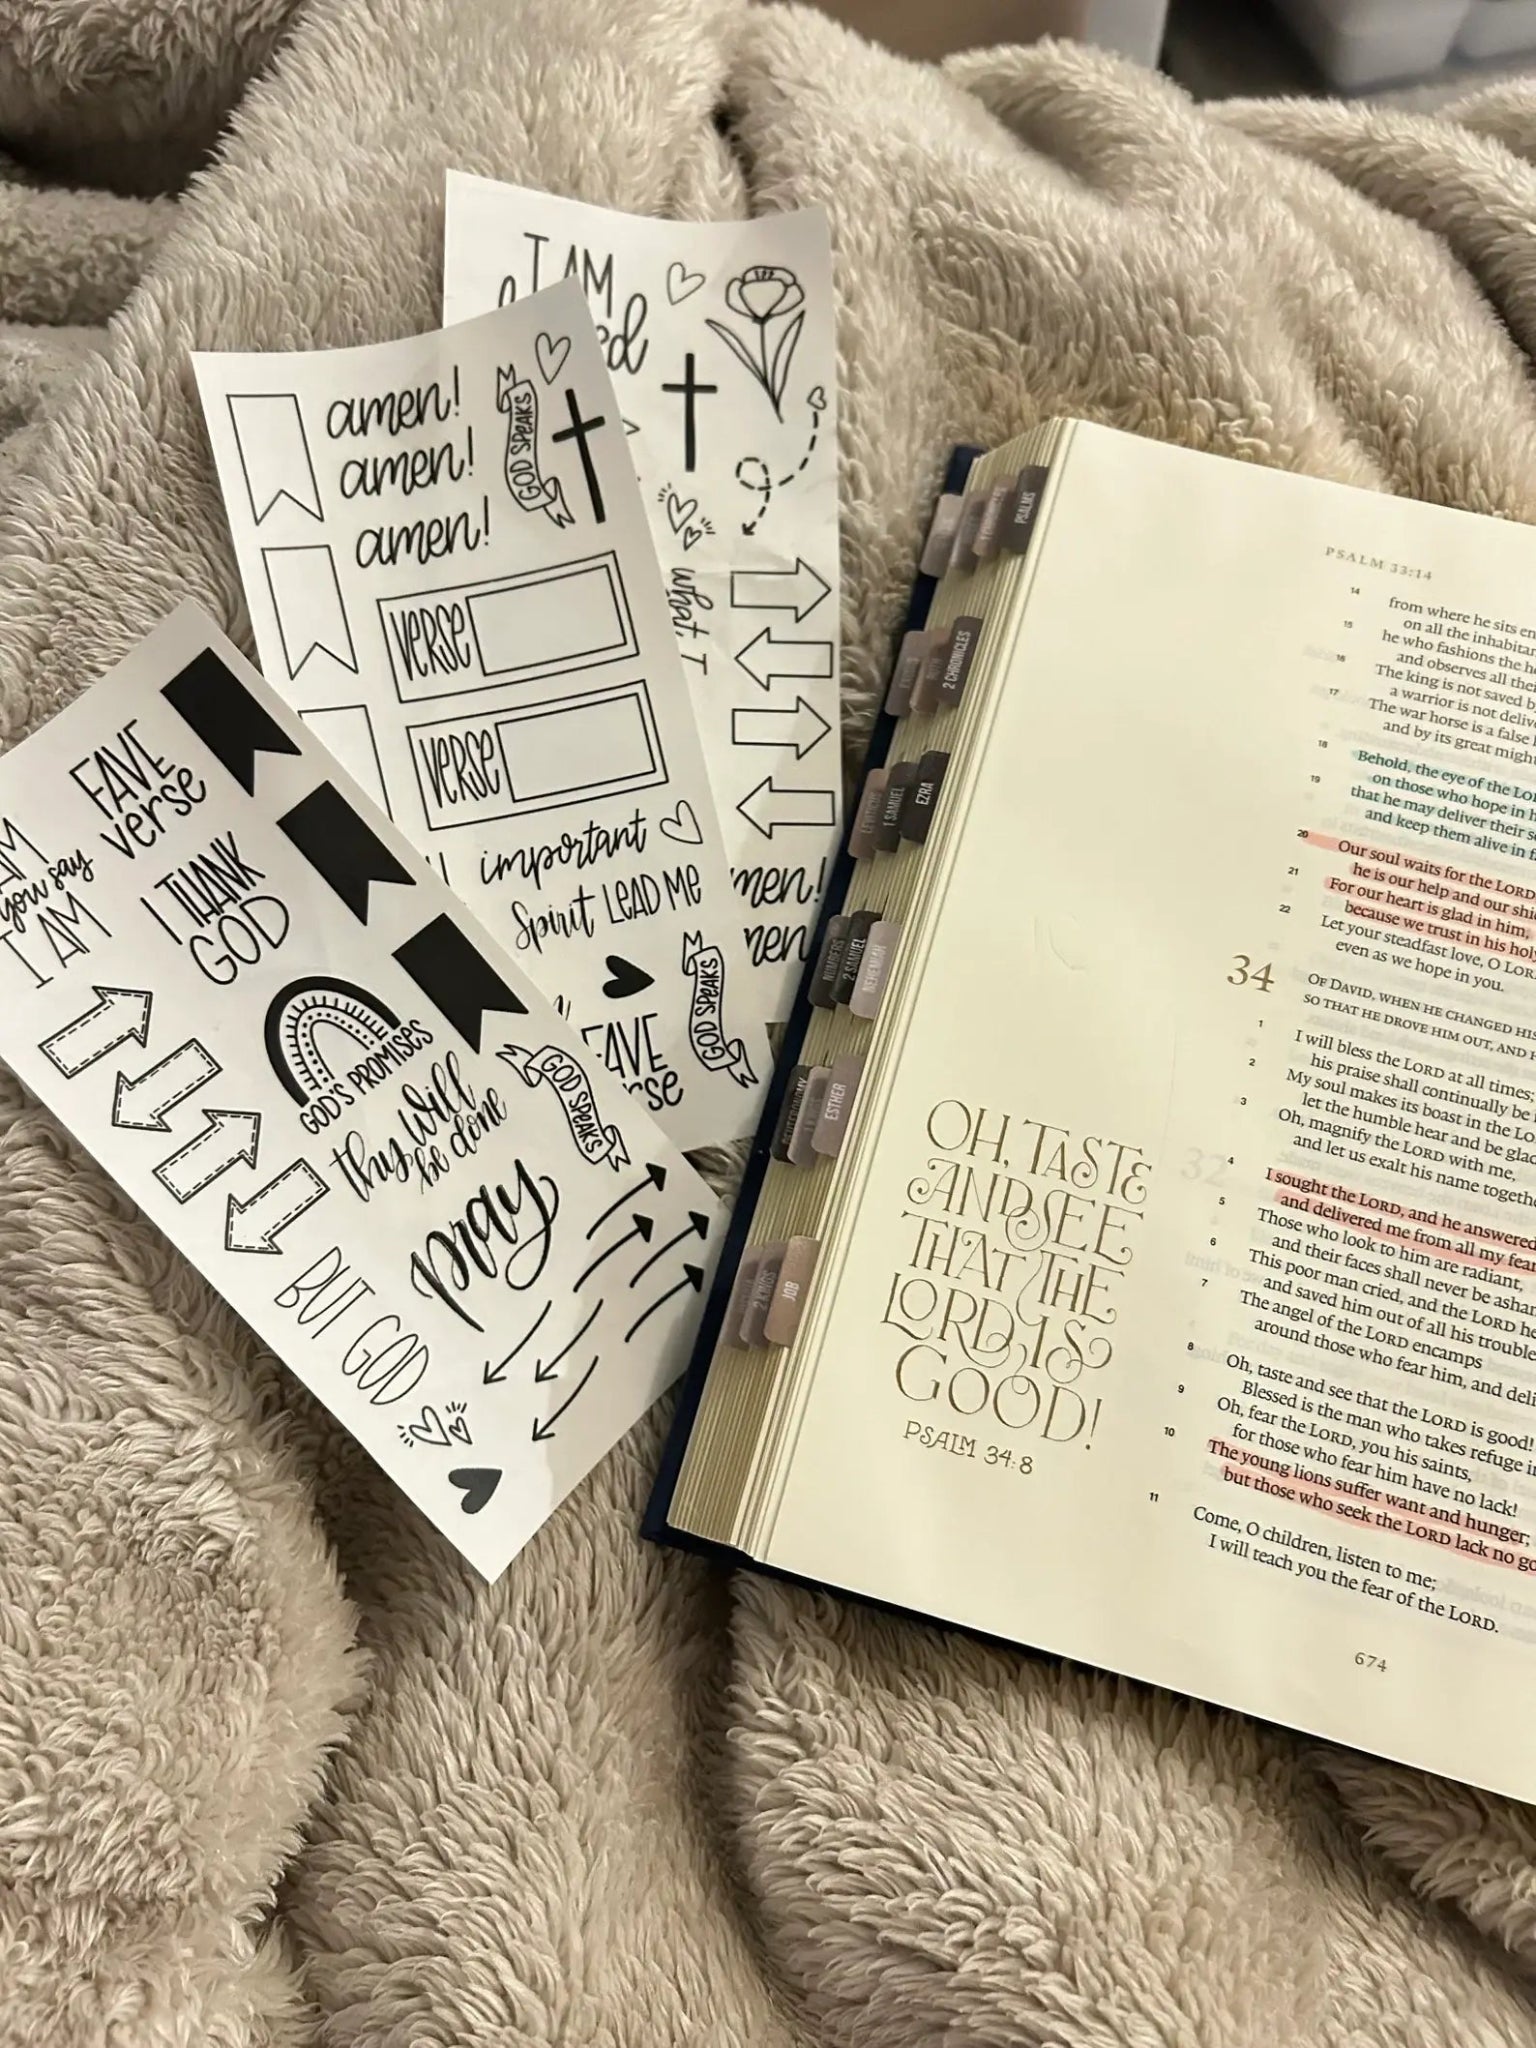 I AM
amen!
amen!
amen!
GOD SPEAKS
VERSE
VERSE
important
Spirit LEAD ME
GOD SPEAKS
FAVE
what I
FAVE
verse
I THANK
GOD
you say
I AM
GOD'S PROMISES
thy will
be done
GOD SPEAKS
pray
BUT GOD
PSALMS
RUTH
2 CHRONICLES
1 SAMUEL
EZRA
NUMBERS
2 SAMUEL
NEHEMIAH
DEUTERONOMY
ESTHER
2 KINGS
JOB
OH, TASTE
AND SEE
THAT THE
LORD IS
GOOD!
PSALM 34:8
PSALM 33:14
14 from where he sits
15 on all the
he who fashions the
16 and observes all
The king is not saved
17 a warrior is not
The war horse is a false
and by its great
18 Behold, the eye of the
19 on those who hope in
that he may deliver their
and keep them alive in
20 Our soul waits for the LORD
he is our help and our
21 For our heart is glad in him,
because we trust in his holy
22 Let your steadfast love, O
even as we hope in you.
34
OF DAVID, WHEN HE CHANGED
SO THAT HE DROVE HIM OUT, AND
1 I will bless the LORD at all times;
his praise shall continually be
2 My soul makes its boast in the
let the humble hear and be
3 Oh, magnify the LORD with me,
and let us exalt his name
4 I sought the LORD, and he answered
and delivered me from all my
5 Those who look to him are radiant,
and their faces shall never be
6 This poor man cried, and the LORD
and saved him out of all his
7 The angel of the LORD encamps
around those who fear him, and
8 Oh, taste and see that the LORD is good!
Blessed is the man who takes refuge
9 Oh, fear the LORD, you his saints,
for those who fear him have no lack!
10 The young lions suffer want and hunger;
but those who seek the LORD lack no
11 Come, O children, listen to me;
I will teach you the fear of the LORD.
674